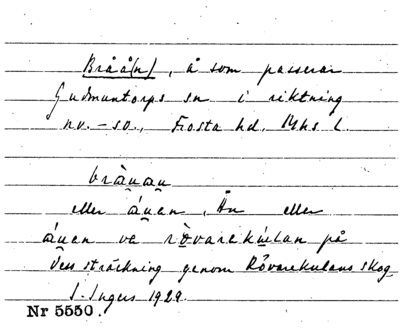 Bråå(n), å som passerar
Gudmuntorps sn i riktning
nv.–so., Frosta hd, Mhs l.
bràu̯au̯
eller áu̯en, Ån eller
áu̯en ve rò̤varekúlan på
dess sträckning genom Rövarekulans skog
I. Ingers 1929.
Nr 5550